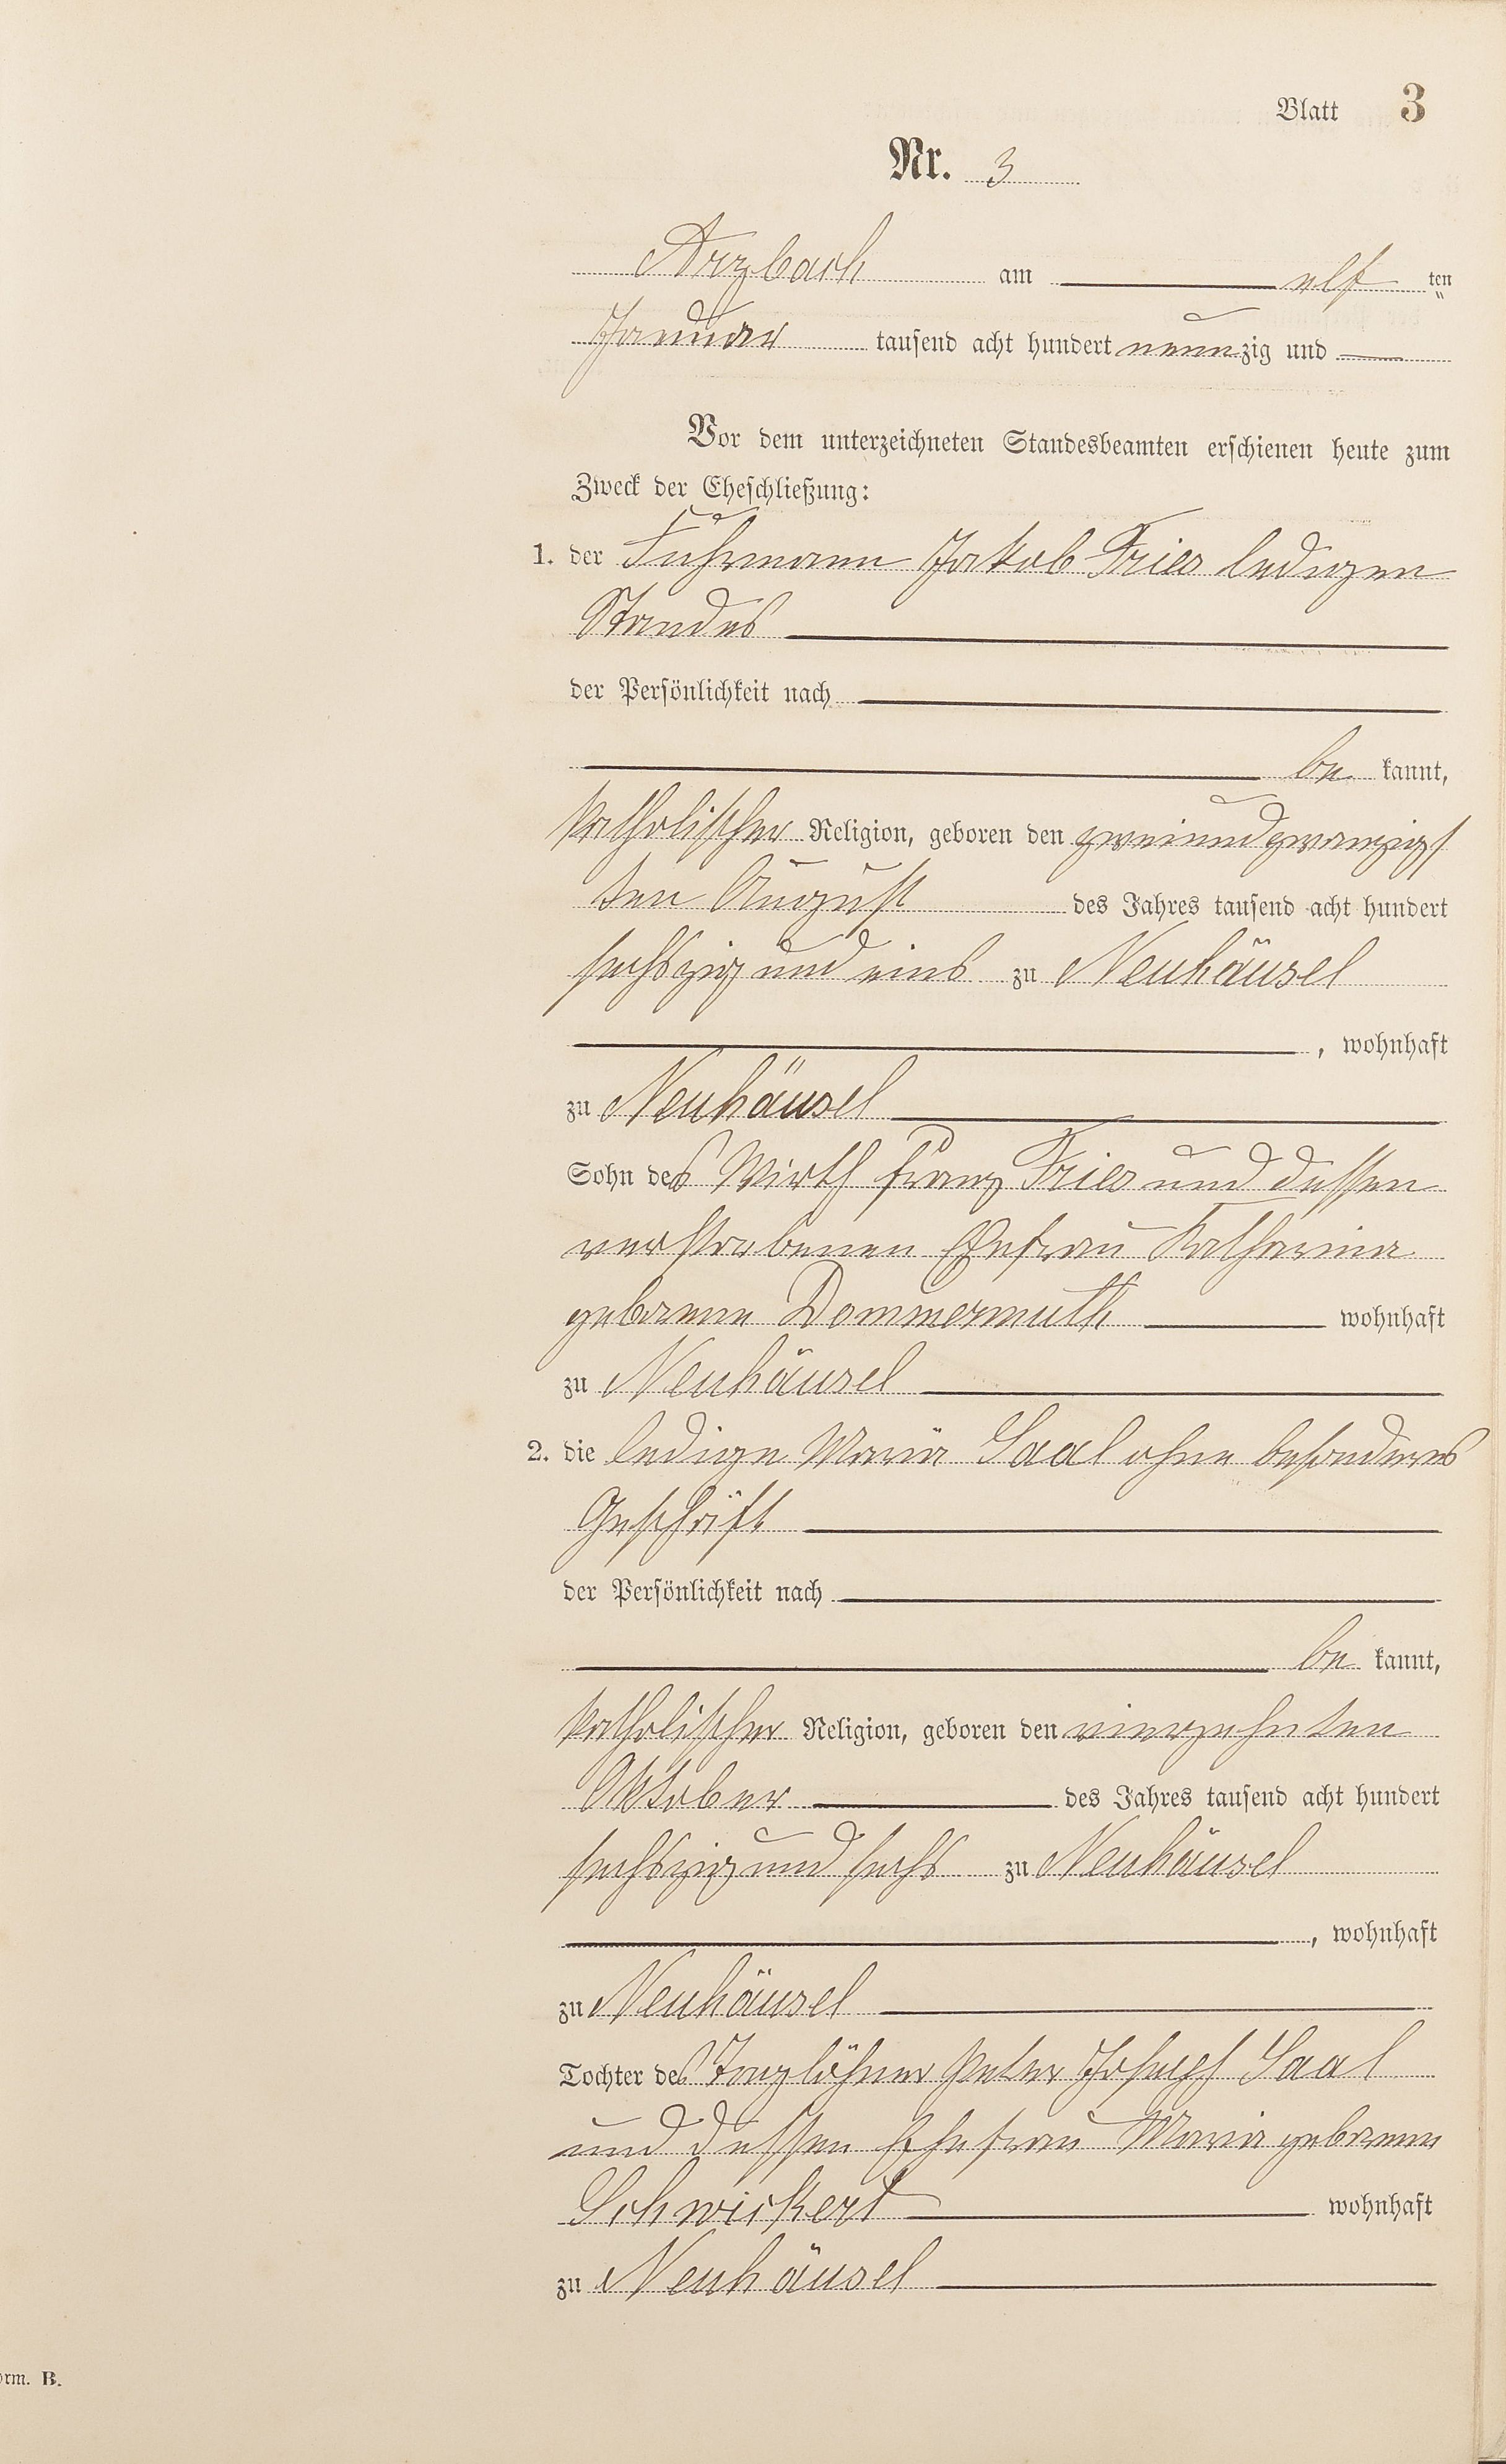 Blatt 3
Nr. 3
Arzbach am elf ten
Januar tausend acht hundert neunzig und
Vor dem unterzeichneten Standesbeamten erschienen heute zum
Zweck der Eheschließung:
1. der Fuhrmann Jakob Fries ledigen
Standes
der Persönlichkeit nach
be kannt,
katholischer Religion, geboren den zweiundzwanzigs
ten August des Jahres tausend acht hundert
sechszig und eins zu Neuhäusel
, wohnhaft
zu Neuhäusel
Sohn des Wirth Franz Fries und dessen
verstorbenen Ehefrau Katharina
geborene Dommermuth wohnhaft
zu Neuhäusel
2. die ledige Maria Saal ohne besonderes
Geschäft
der Persönlichkeit nach
be kannt,
katholischer Religion, geboren den vierzehnten
Oktober des Jahres tausend acht hundert
sechszig und sechs zu Neuhäusel
, wohnhaft
zu Neuhäusel
Tochter des Taglöhner Peter Joseph Saal
und dessen Ehefrau Maria geborene
Schwickert wohnhaft
zu Neuhäusel
orm. B.